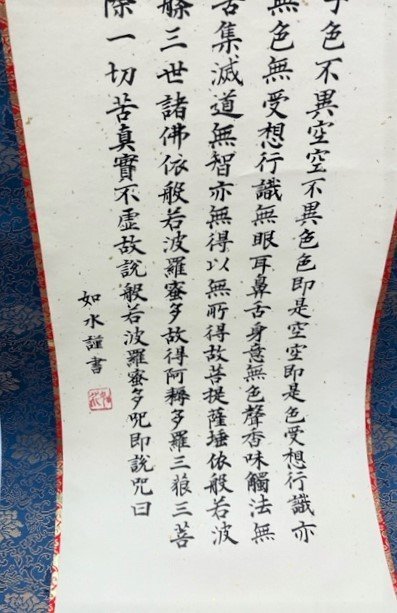 子色不異空空不異色色即是空空即是色受想行識亦
無色無受想行識無眼耳鼻舌身意無色聲香味觸法無
苦集滅道無智亦無得以無所得故菩提薩埵依般若波
三世諸佛依般若波羅蜜多故得阿耨多羅三藐三菩
除一切苦真實不虛故說般若波羅蜜多咒即說咒曰
如水謹書